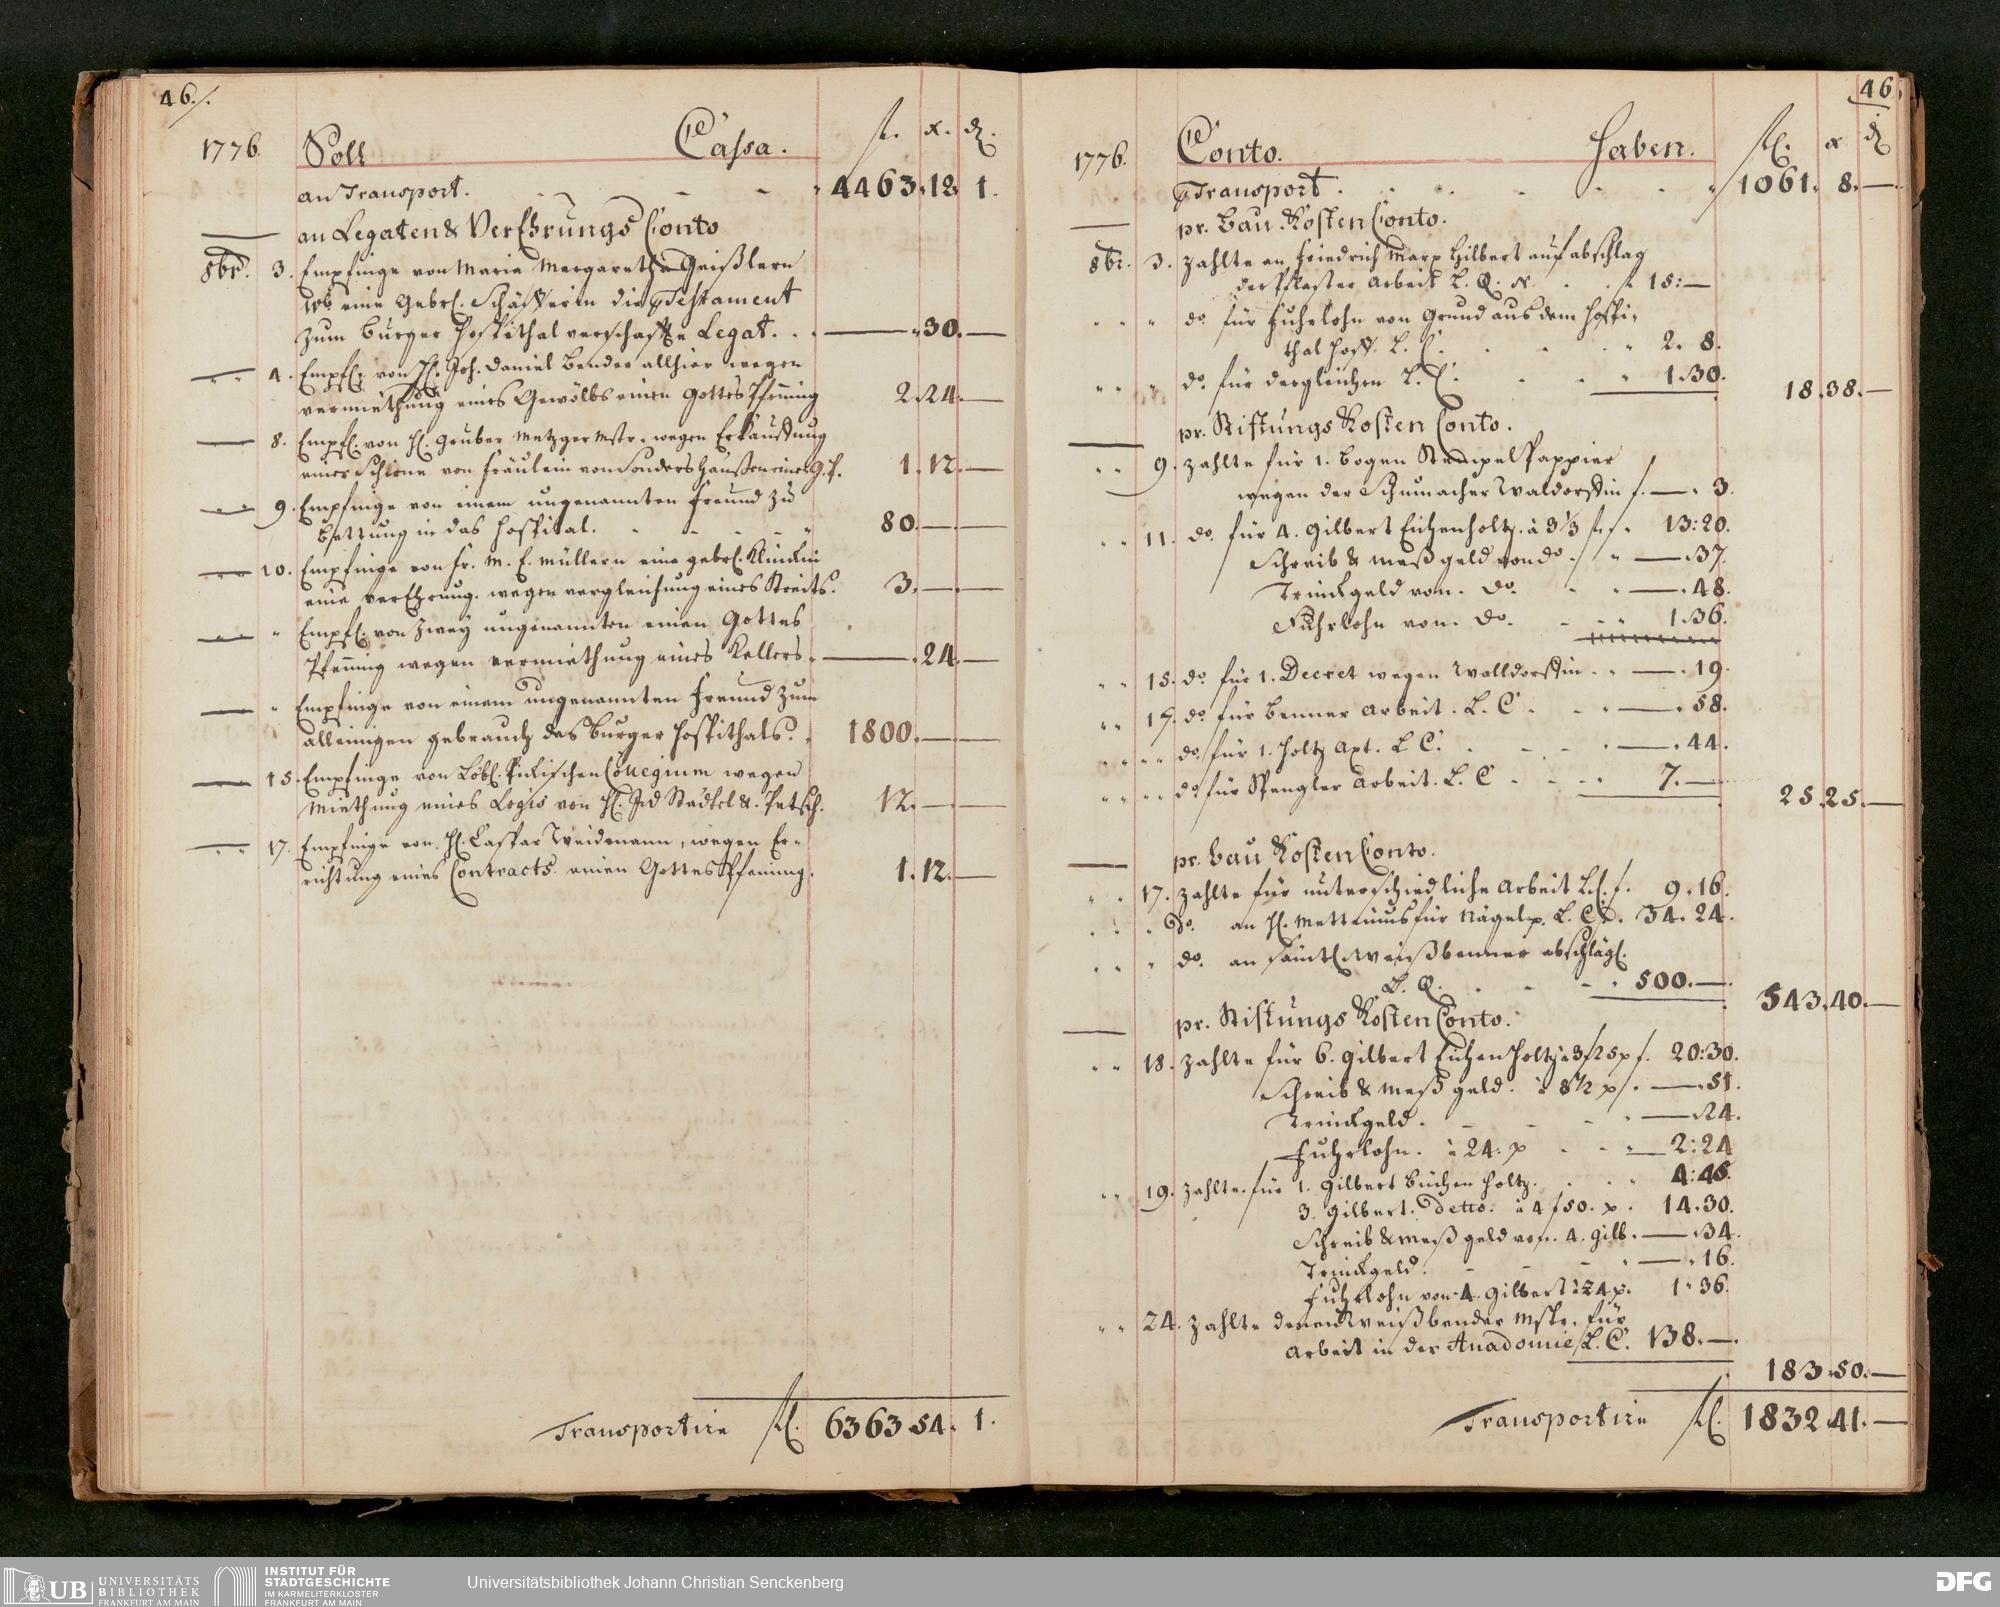 46./.
1776. Soll Cassa. fl. x. ₰.
an Transport. - - - 4463. 12. 1.
an Legaten & VerEhrungs Conto
8br. 3. Empfinge von Maria Margaretha Geißlern
eine Gebrl. Schäfferin die Testament
zum Burger Hospithal verschaffte Legat. . . — 30. —
4. Empfl. von H. Joh. Daniel Bender allhier wegen
vermiethung eines Gewölbs einen Gottes Pfenning 2. 24. —
8. Empfl. von H. Gruber Metzger Mstr. wegen Erkauffung
einer Schirne von Fräulein von Sonders Haußen einen G. P. 1. 12. —
9. Empfinge von einem ungenannten Freund zu
Bettung in das Hospital. - - - 80. — —
10. Empfinge von Fr. M. E. Müllern eine gebrl.
eine verEhrung. wegen vergleichung eines Streits. 3. — —
" Empfl. von Zwey ungenannten einen Gottes
Pfenning wegen vermiethung eines Kellers. — 24. —
" Empfinge von einem ungenannten Freund zum
alleinigen gebrauch des Burger Hospithals. . 1800. — —
15. Empfinge von Löbl. Collegium wegen
Miethung eines Logis von H. Städel & . 12. — —
17. Empfinge von H. Caspar Weidmann, wegen Er-
richtung eines Contracts. einen Gottes Pfenning. 1. 12. —
Transportire fl. 6363. 54. 1.
46.
1776. Conto. Haben. fl. x ₰
Transport. - - - 1061. 8. —
pr. Bau Kosten Conto.
8br. 3. zahlte an Friedrich Marx Hilbert auf abschlag
der Pflaster Arbeit L. Q. 15: —
" " " do. für Fuhrlohn von Grund aus dem Hospi-
thal Hoff. L. C. - - " 2. 8.
" " " do. für dergleichen L. C. - - " 1. 30. 18. 38. —
pr. Stiftungs Kosten Conto.
" " 9. zahlte für 1. Bogen Stempel Pappier
wegen der Schumacher Waldorffin f. — . 3.
" " 11. do. für 4. Gilbert Eichenholtz. à 3 1/3 f. 13: 20.
Schreib & Meß geld von do. " — . 37.
Trinckgeld von. Do. - " — . 48.
Fuhrlohn von. Do. - " 1. 36.
" " 15. do. für 1. Decret wegen Walldorffin . . — . 19.
" " 17. do. für Benner Arbeit. L. C. - " — . 58.
" " " " do. für 1. Holtz Axt. L C. - - " — . 44.
" " " " do. für Spengler Arbeit. L. C - - " 7. — 25. 25. —
pr. Bau Kosten Conto.
" " 17. zahlte für unterschiedliche Arbeit L. C. f. 9. 16.
" " " Do. an H. Mettenius für Nägel p. L. C. 34. 24.
" " " do. an sämtl. Weißbenner abschlägl.
L. Q. - - " 500. — 543. 40. —
pr. Stiftungs Kosten Conto.
" " 18. zahlte für 6. Gilbert Eichen Holtz à 3 f 25 x f. 20: 30.
Schreib & Meß geld. à 8 1/2 x f. — . 51.
Trinckgeld. - - - " — . 24.
Fuhrlohn. à 24. x - - " 2: 24
" " 19. zahlte für 1. Gilbert Buchen Holtz. - " 4: 45.
3. Gilbert. Detto. à 4 f 50. x. 14. 30.
Schreib & Meß geld von. 4. Gilb. — . 34.
Trinckgeld. - - " — . 16.
Fuhrlohn von 4. Gilbert à 24 x. 1. 36.
" " 24. zahlte denen Weißbender Mstr. für
Arbeit in der Anadomie L. C. 138. —
183. 50. —
Transportire fl. 1832. 41. —
UB UNIVERSITÄTS BIBLIOTHEK FRANKFURT AM MAIN
INSTITUT FÜR STADTGESCHICHTE IM KARMELITERKLOSTER FRANKFURT AM MAIN
Universitätsbibliothek Johann Christian Senckenberg
DFG